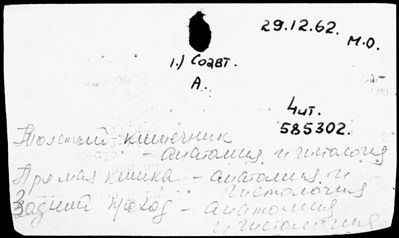 29.12.62.
М.О.
1.) Соавт.
А.
4 ит.
585302.
Толстый кишечник
- анатомия и гистология
Прямая кишка - анатомия и
гистология
Задний проход - анатомия
и гистология